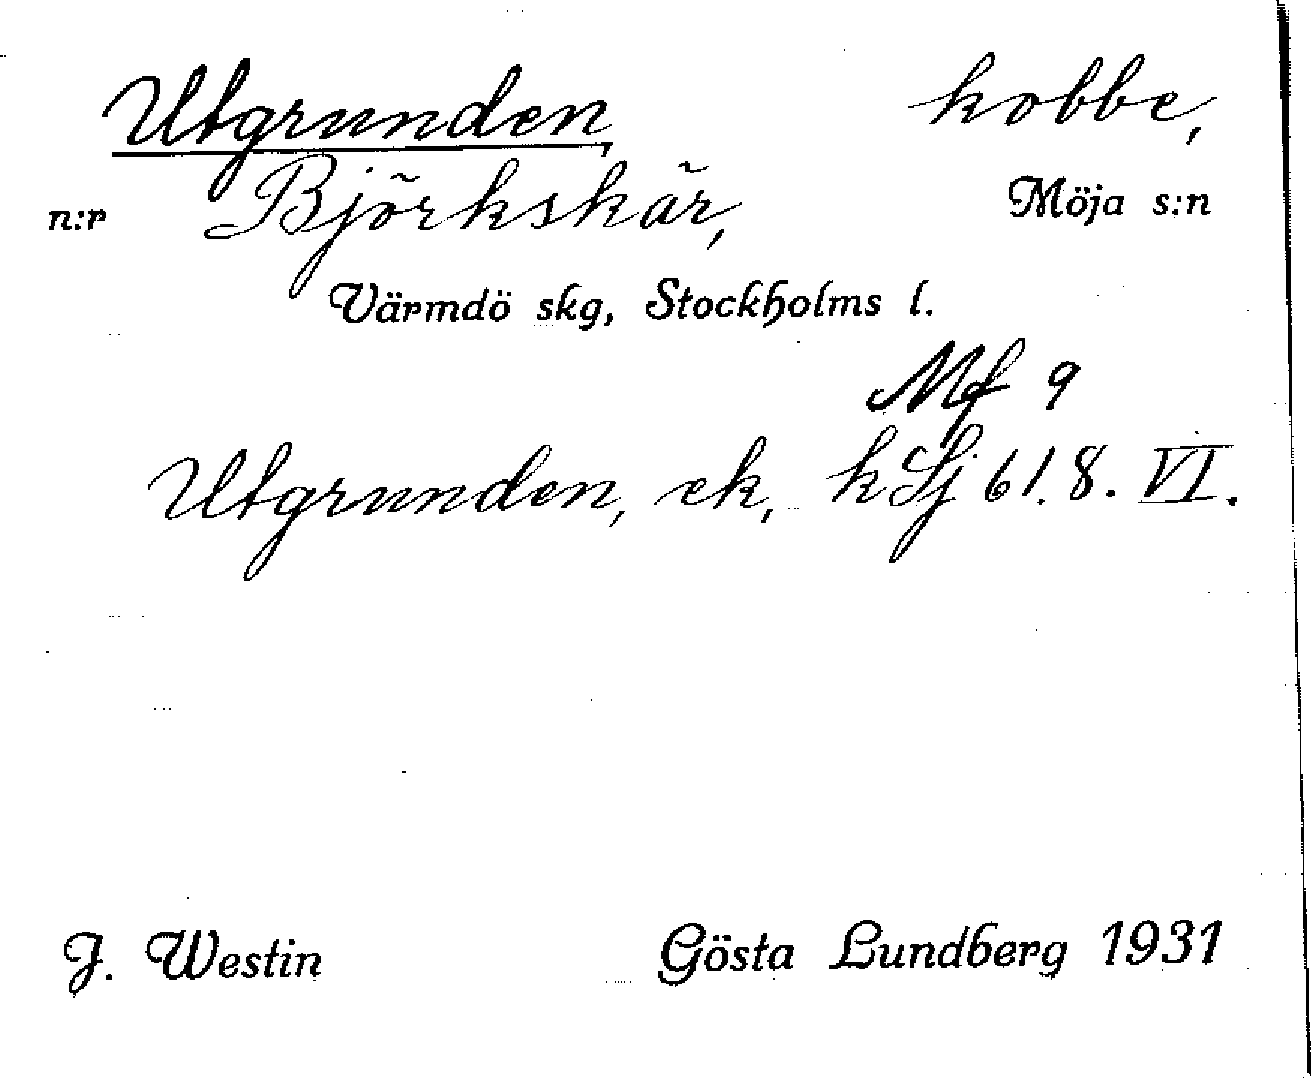 Utgrunden, kobbe,
n:r Björkskär, Möja s:n
Värmdö skg, Stockholms l.
Mf 9
Utgrunden, ek, kSj 61. 8. VI.
J. Westin Gösta Lundberg 1931